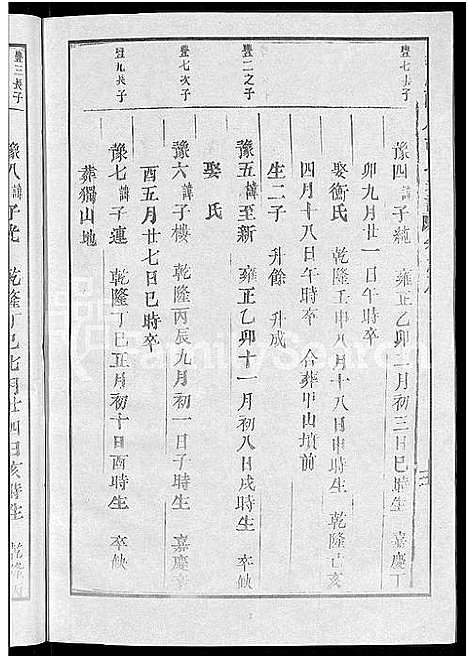 豐七長子
豫四諱子統 雍正乙卯二月初三日巳時生 嘉慶丁
卯九月廿一日午時卒
娶衛氏 乾隆壬申八月十八日申時生 乾隆己亥
四月十八日午時卒 合葬甲山墳前
生二子 升餘 升成
豐二之子
豫五諱至新 雍正乙卯十一月初八日戌時生 卒缺
娶 氏
豐七次子
豫六諱子樓 乾隆丙辰九月初一日子時生 嘉慶辛
酉五月廿七日巳時卒
豐九長子
豫七諱子連 乾隆丁巳五月初十日酉時生 卒缺
葬獨山地
豐三長子
豫八諱子光 乾隆丁巳七月廿四日亥時生 乾隆
FamilySearch